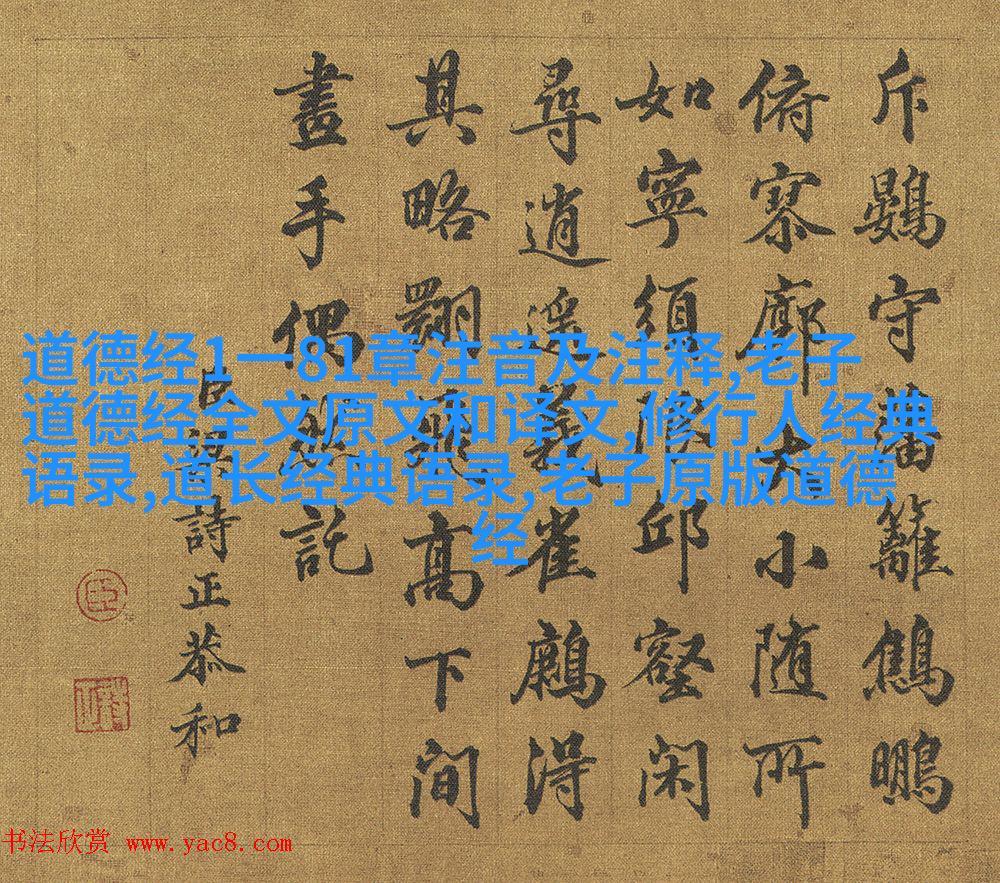 斥鷃守藩籬鷦鵬
俯寥廓大小随所
如寧須限邱壑閑
尋逍遥義雀得
其略翾高下間
畫手偶託
臣梁詩正恭和
道德经1一81章注音及注释,老子
道德经全文原文和译文,修行人经典
语录,道长经典语录,老子原版道德
经
书法欣赏 www.yac8.com